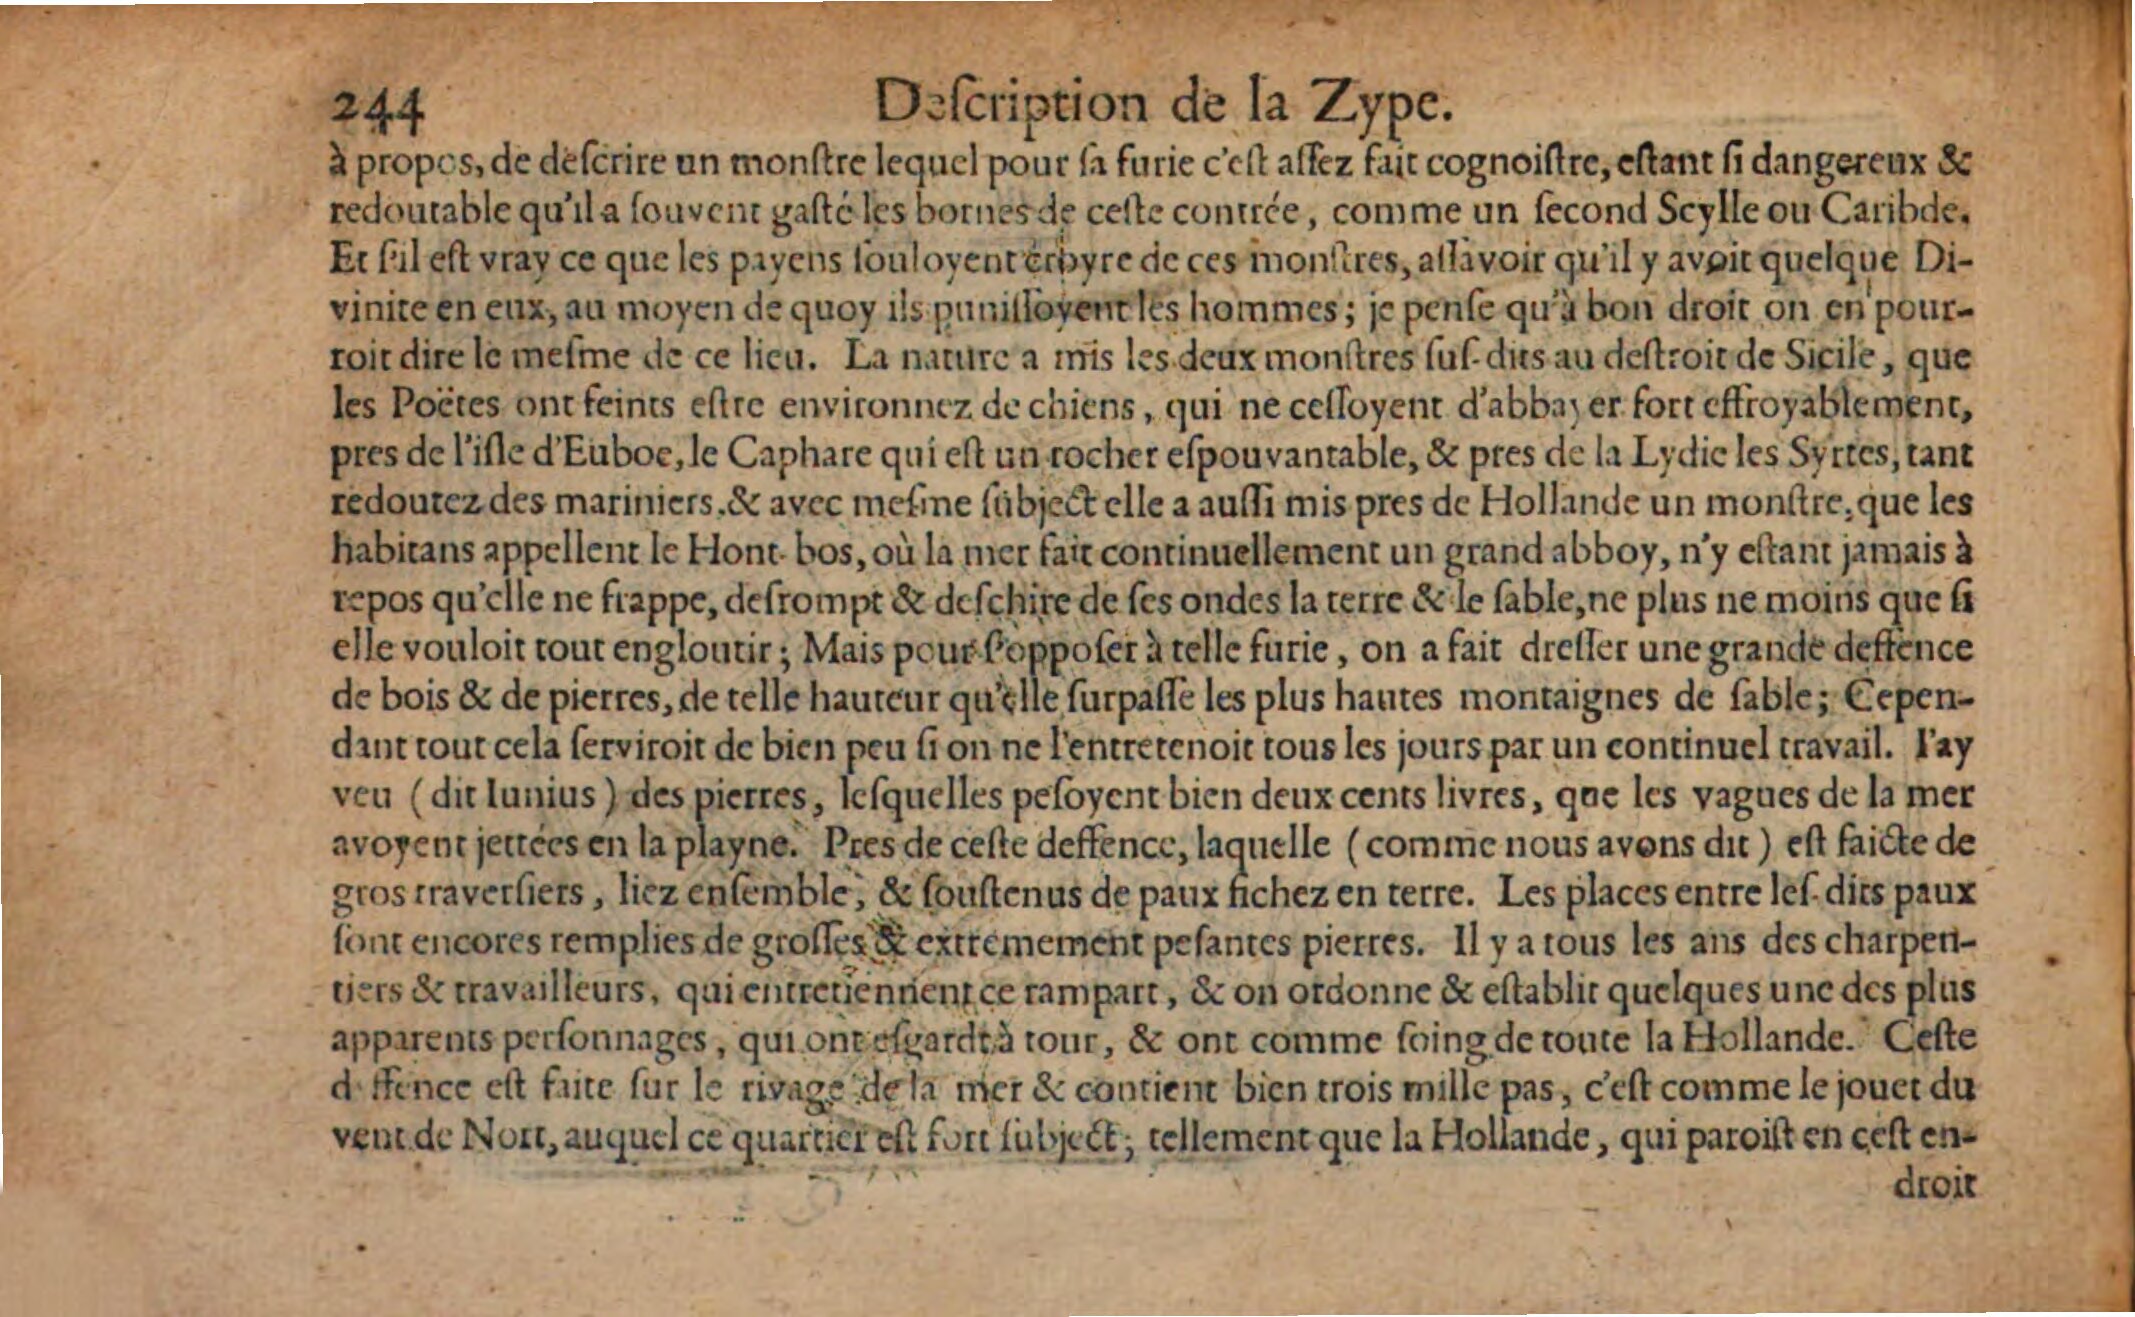 244 Deſcription de la Zype.
à propos, de deſcrire un monſtre lequel pour ſa furie c'eſt aſſez fait cognoiſtre, eſtant ſi dangereux &
redoutable qu'il a ſouvent gaſté les bornes de ceſte contrée, comme un ſecond Scylle ou Caribde.
Et ſ'il eſt vray ce que les payens ſouloyent croyre de ces monſtres, aſſavoir qu'il y avoit quelque Di-
vinite en eux, au moyen de quoy ils puniſſoyent les hommes; je penſe qu'à bon droit on en pour-
roit dire le meſme de ce lieu. La nature a mis les deux monſtres ſuſ-dits au deſtroit de Sicile, que
les Poëtes ont feints eſtre environnez de chiens, qui ne ceſſoyent d'abbayer fort effroyablement,
pres de l'iſle d'Euboe, le Caphare qui eſt un rocher eſpouvantable, & pres de la Lydie les Syrtes, tant
redoutez des mariniers. & avec meſme ſubject elle a auſſi mis pres de Hollande un monſtre, que les
habitans appellent le Hont-bos, où la mer fait continuellement un grand abboy, n'y eſtant jamais à
repos qu'elle ne frappe, deſrompt & deſchire de ſes ondes la terre & le ſable, ne plus ne moins que ſi
elle vouloit tout engloutir; Mais pour ſ'oppoſer à telle furie, on a fait dreſſer une grande deffence
de bois & de pierres, de telle hauteur qu'elle ſurpaſſe les plus hautes montaignes de ſable; Cepen-
dant tout cela ſerviroit de bien peu ſi on ne l'entretenoit tous les jours par un continuel travail. I'ay
veu (dit Iunius) des pierres, leſquelles peſoyent bien deux cents livres, que les vagues de la mer
avoyent jettées en la playne. Pres de ceſte deffence, laquelle (comme nous avons dit) eſt faicte de
gros traverſiers, liez enſemble, & ſouſtenus de paux fichez en terre. Les places entre leſ-dits paux
ſont encores remplies de groſſes & extremement peſantes pierres. Il y a tous les ans des charpen-
tiers & travailleurs, qui entretiennent ce rampart, & on ordonne & eſtablit quelques une des plus
apparents perſonnages, qui ont eſgardt à tour, & ont comme ſoing de toute la Hollande. Ceſte
deffence eſt faite ſur le rivage de la mer & contient bien trois mille pas, c'eſt comme le jouet du
vent de Nort, auquel ce quartier eſt fort ſubject; tellement que la Hollande, qui paroiſt en ceſt en-
droit